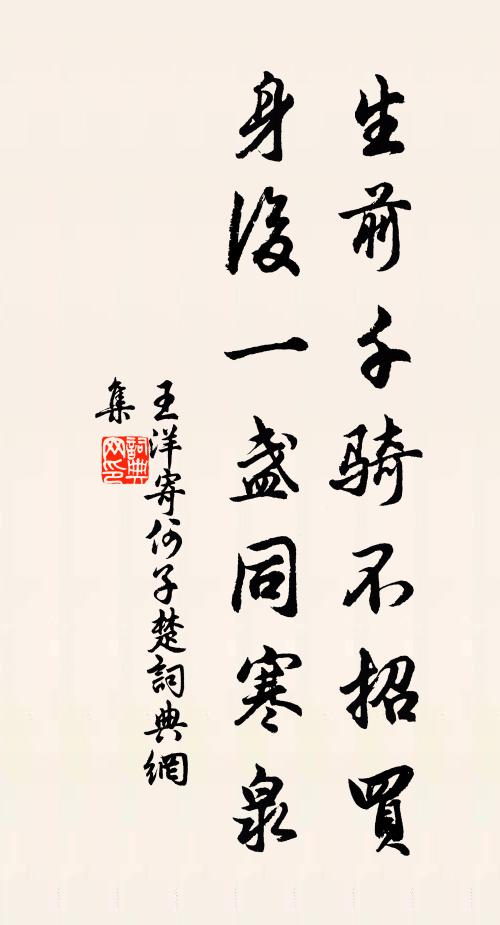 生前千騎不招買
身後一盞同寒泉
王洋寄何子楚詞典網
集
詞典
网印